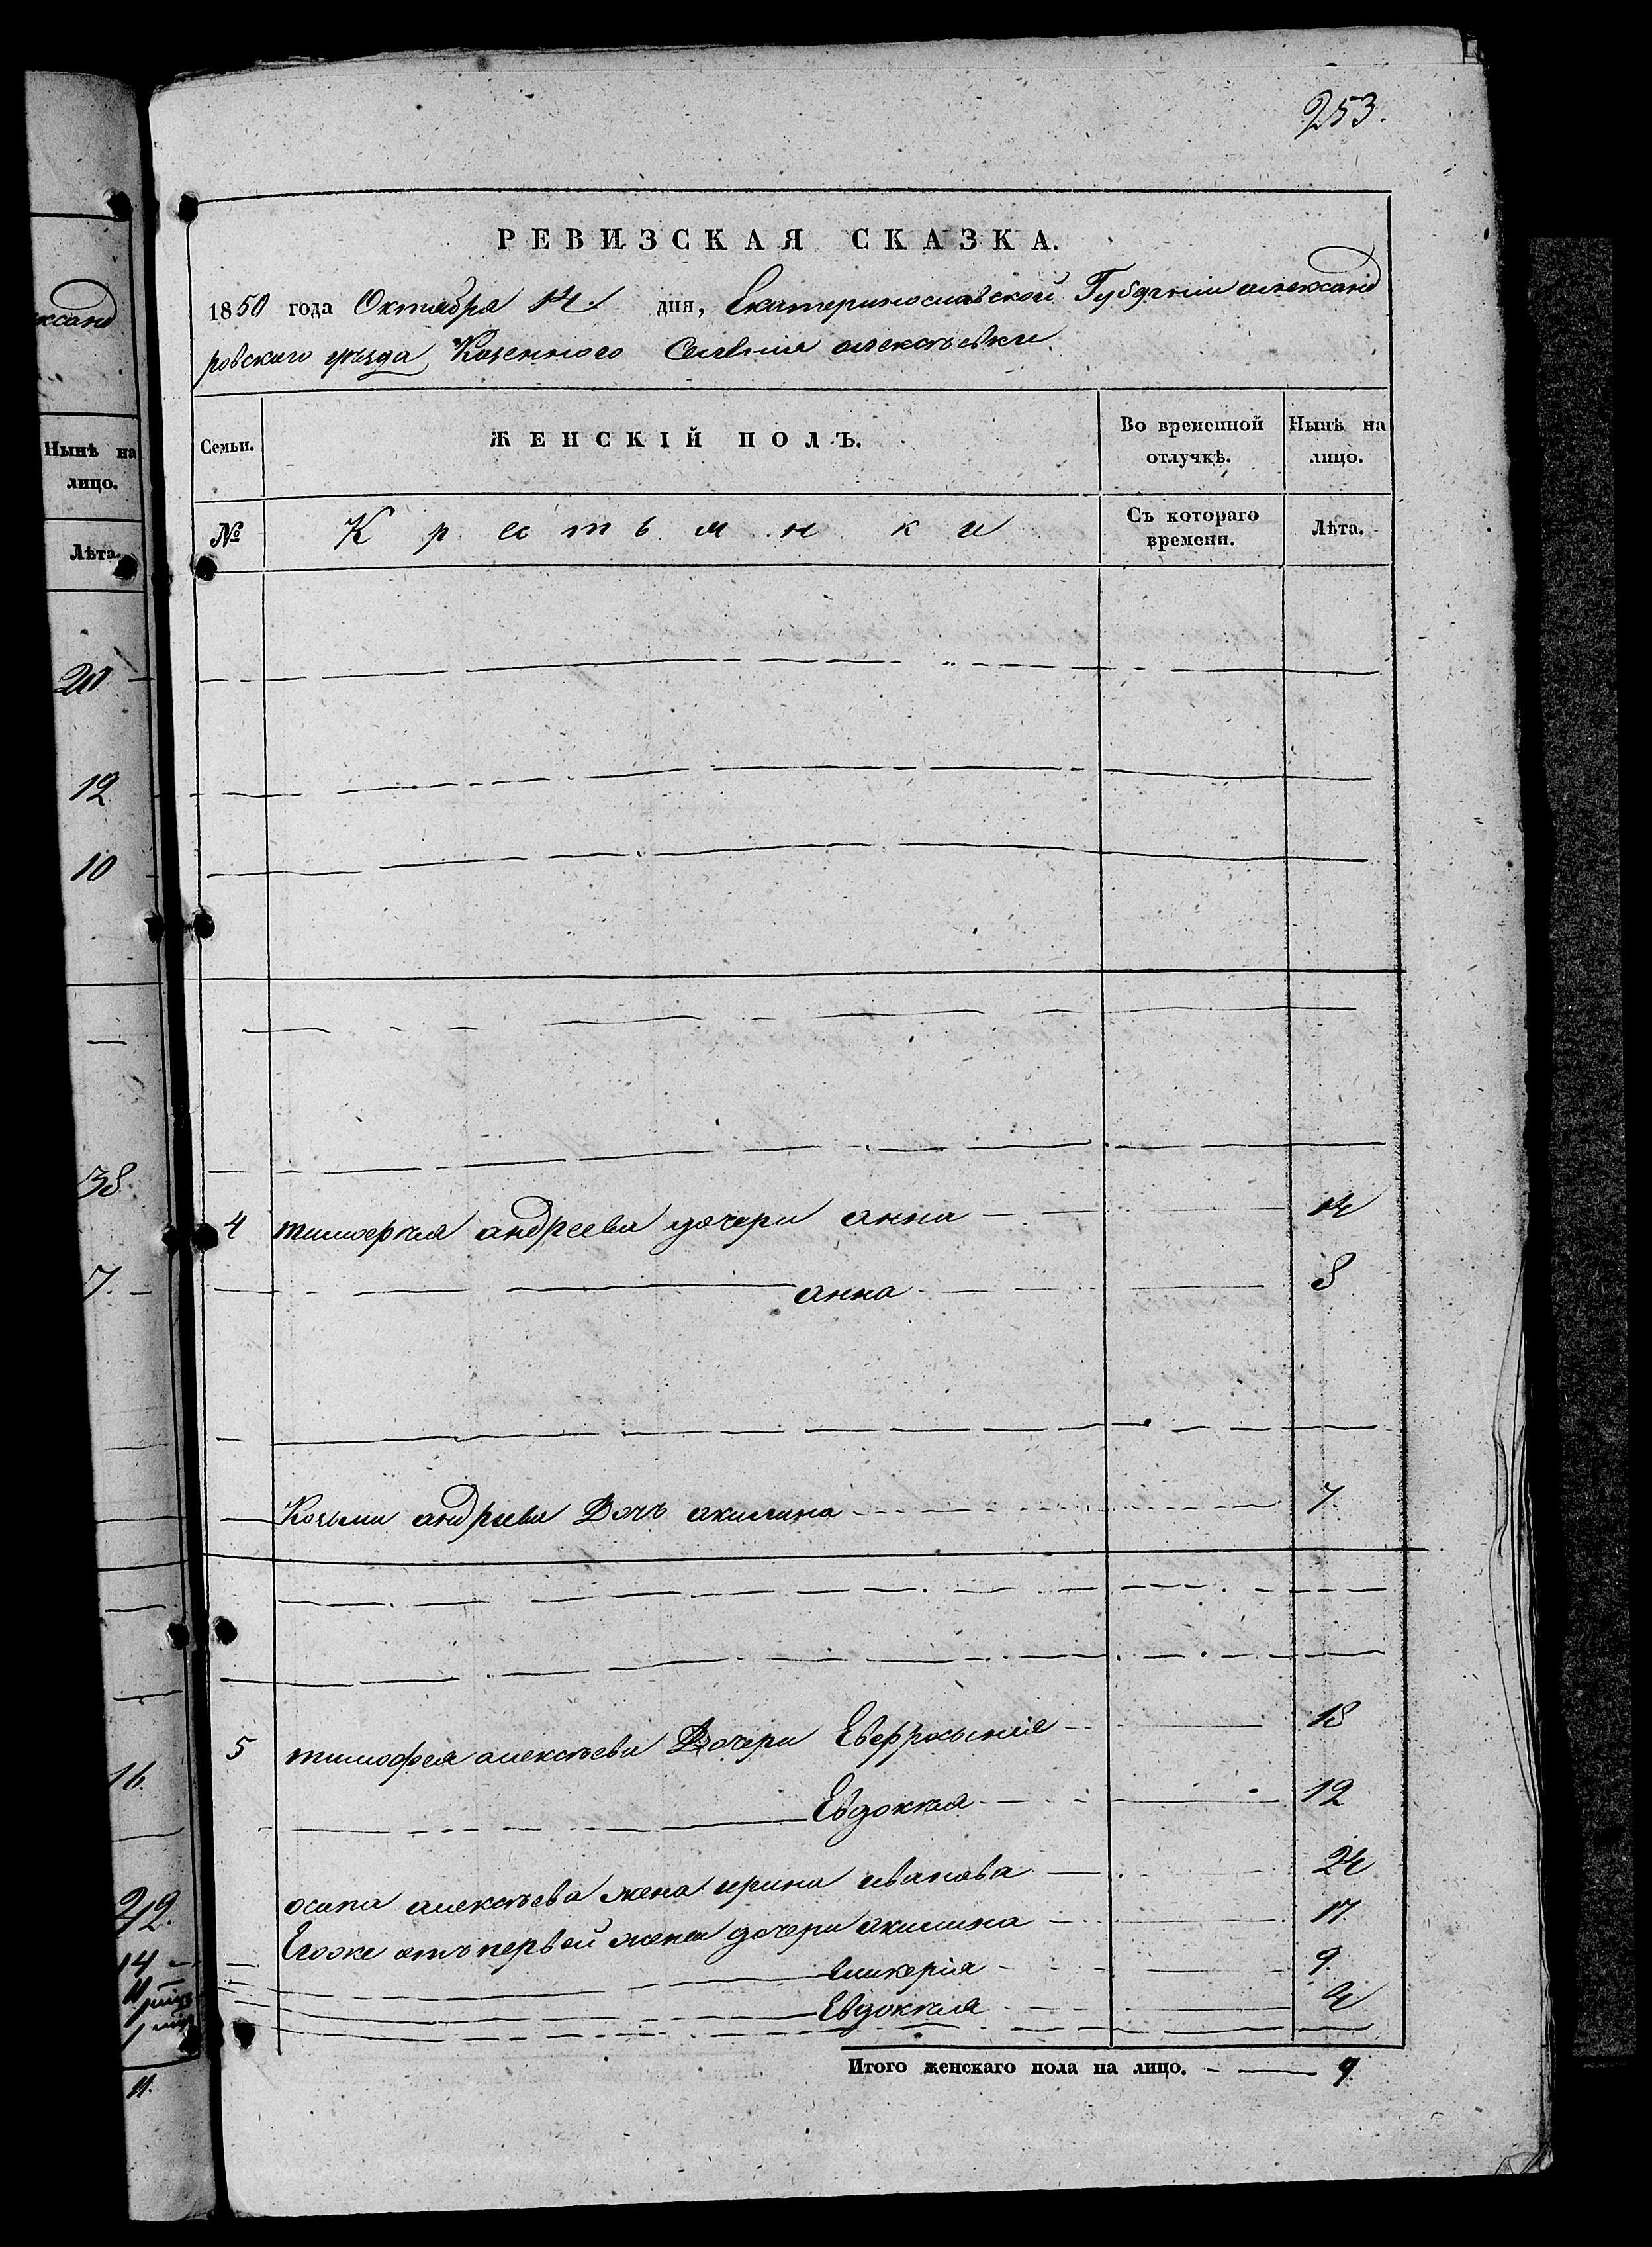 253.
РЕВИЗСКАЯ СКАЗКА.
1850 года Октября 14 дня, Екатеринославской Губернии александ
ровского уезда Казенного Селения алексеевки
Семьи.
ЖЕНСКІЙ ПОЛЪ.
Во временной отлучкѣ.
Нынѣ на лицо.
№
Крестьянки
Съ котораго времени.
Лѣта.
4 тимофея андреева дочери анна 14
анна 8
Козьми андреева Дочь акилина 7
5 тимофея алексеева Дочери Евфросиния 18
Евдокия 12
осипа алексеева жена ирина иванова 24
Егоже отъ первой жены дочери акилина 17
9
Евдокия 4
Итого женскаго пола на лицо. 9.
ксанд
Нынѣ на
лицо.
Лѣта.
20
12
10
38
7
16
14
11